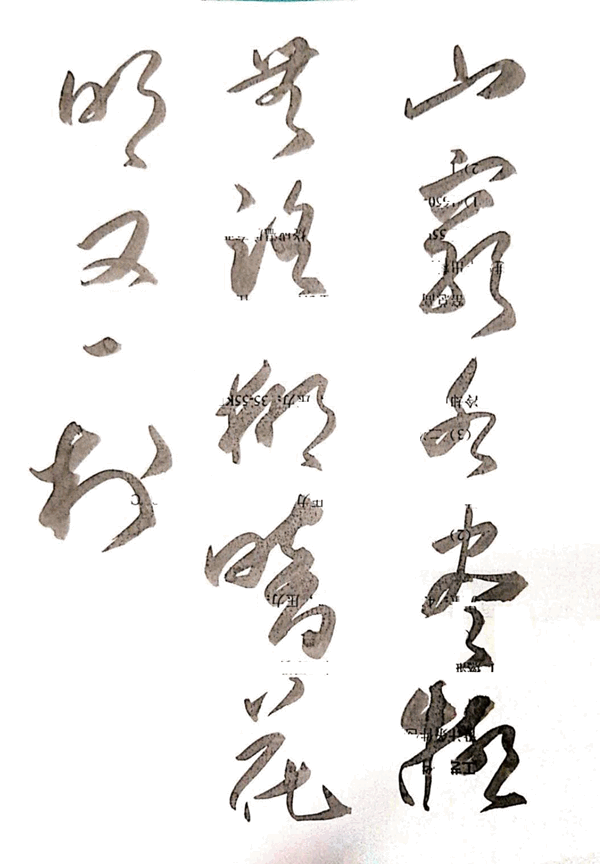 山窮水盡疑
無路柳暗花
明又一村